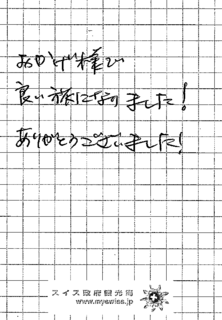 おかげ様で
良い旅になりました!
ありがとうございました!
スイス政府観光局
www.myswiss.jp